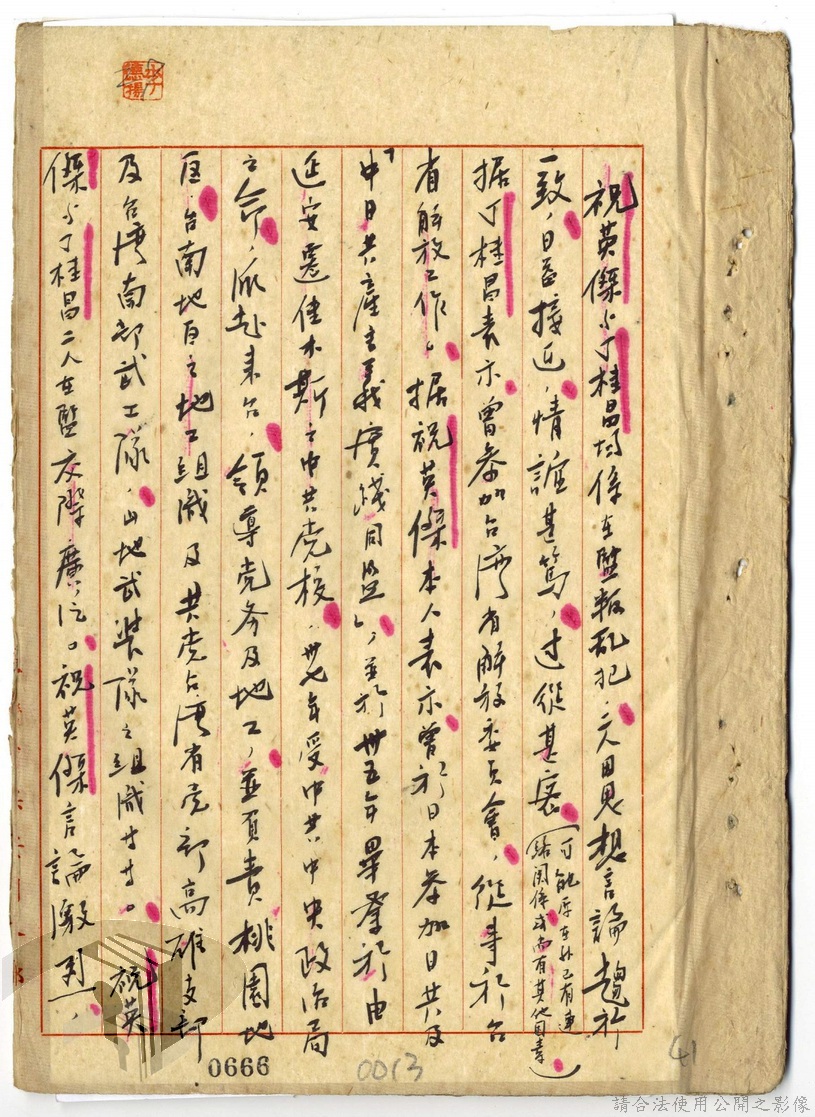 祝英傑与丁桂昌均係在監叛乱犯，二人因思想言論趨於
一致，日益接近，情誼甚篤，过從甚密（可能原在外已有連
結関係或尚有其他因素）
据丁桂昌表示曾参加台湾省解放委員會，從事於台
省解放工作。据祝英傑本人表示曾於日本参加日共及
「中日共產主義實踐同盟」，並於卅五年畢業於由
延安遷佳木斯之中共党校，卅七年受中共中央政治局
之命，派赴来台，領導党务及地工，並負責桃園地
区，台南地區之地工組織及共党台湾省党部高雄支部
及台湾南部武工隊，山地武裝隊之組織廾廾。祝英
傑与丁桂昌二人在監交際廣泛。祝英傑言論激烈，
0666
0013
41
請合法使用公開之影像